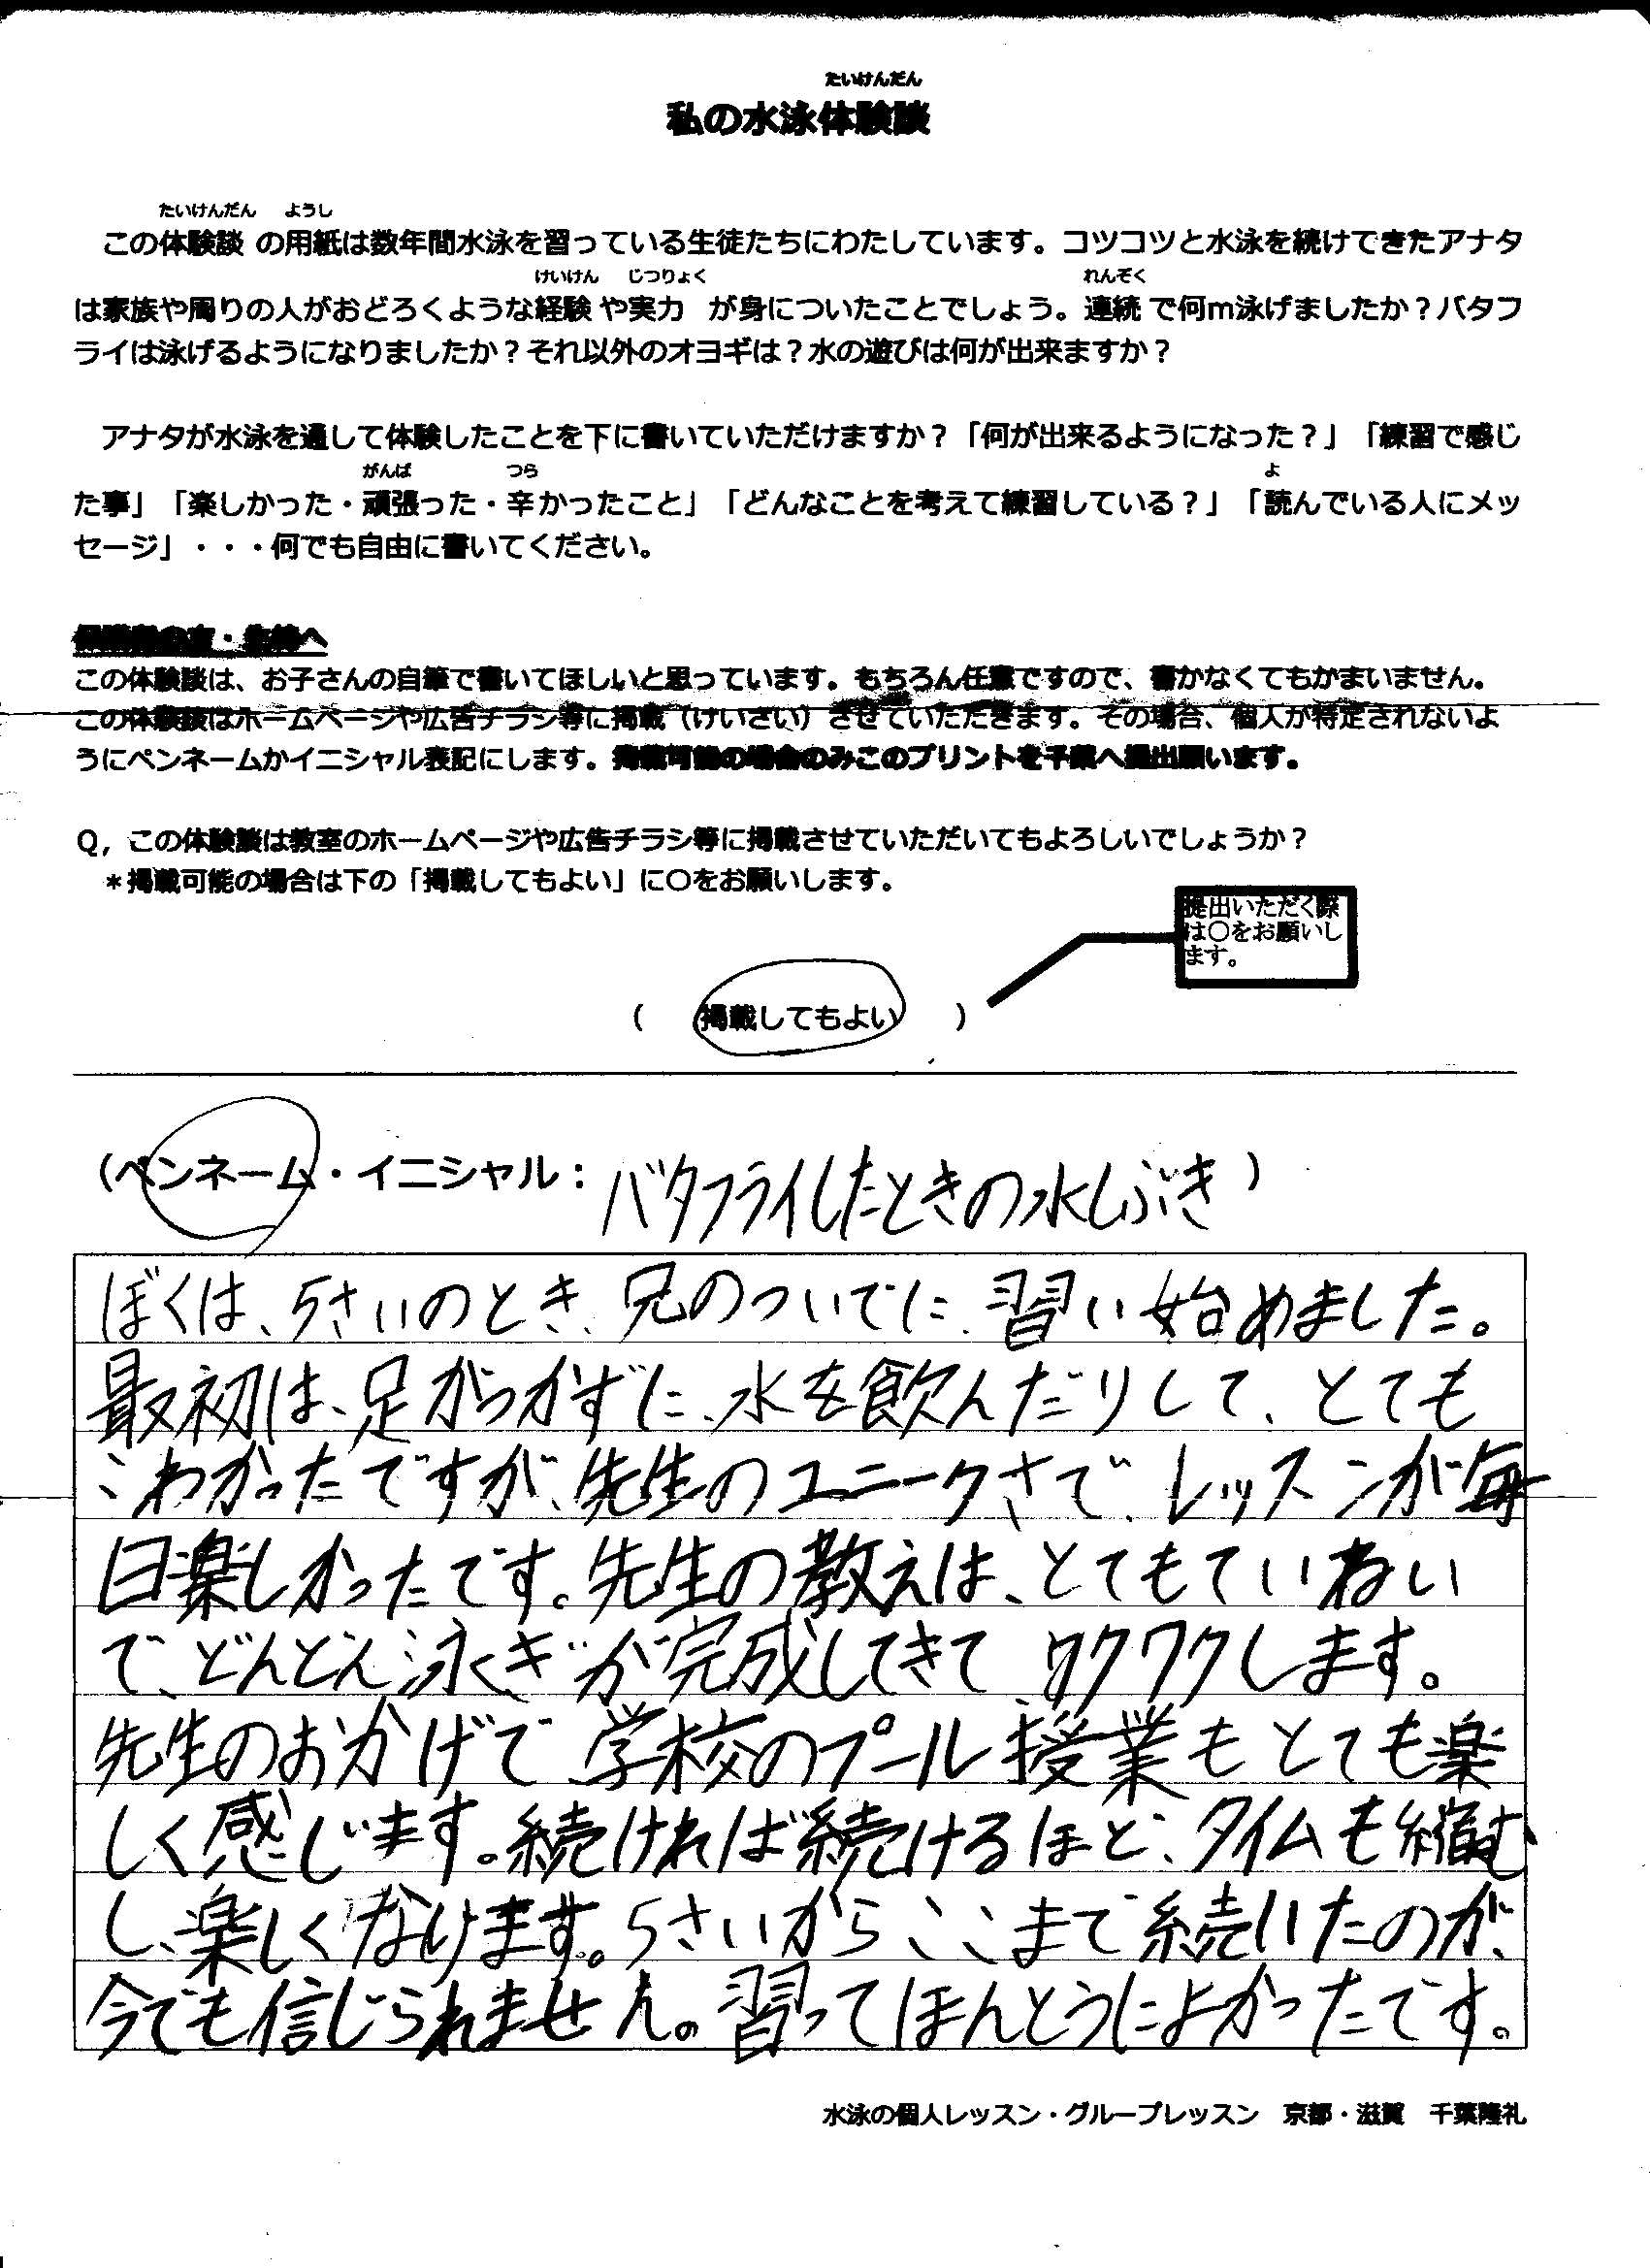 たいけんだん
私の水泳体験談
たいけんだん ようし
この体験談 の用紙は数年間水泳を習っている生徒たちにわたしています。コツコツと水泳を続けてきたアナタ
けいけん じつりょく れんぞく
は家族や周りの人がおどろくような経験 や実力 が身についたことでしょう。連続 で何m泳げましたか？バタフ
ライは泳げるようになりましたか？それ以外のオヨギは？水の遊びは何が出来ますか？
アナタが水泳を通して体験したことを下に書いていただけますか？「何が出来るようになった？」「練習で感じ
がんば つら よ
た事」「楽しかった・頑張った・辛かったこと」「どんなことを考えて練習している？」「読んでいる人にメッ
セージ」・・・何でも自由に書いてください。
保護者の方・生徒へ
この体験談は、お子さんの自筆で書いてほしいと思っています。もちろん任意ですので、書かなくてもかまいません。
この体験談はホームページや広告チラシ等に掲載（けいさい）させていただきます。その場合、個人が特定されないよ
うにペンネームかイニシャル表記にします。掲載可能の場合のみこのプリントを千葉へ提出願います。
Q，この体験談は教室のホームページや広告チラシ等に掲載させていただいてもよろしいでしょうか？
＊掲載可能の場合は下の「掲載してもよい」に〇をお願いします。
提出いただく際
は〇をお願いし
ます。
（ 掲載してもよい ）
（ペンネーム・イニシャル：バタフライしたときの水しぶき）
ぼくは、5さいのとき、兄のついでに、習い始めました。
最初は、足がつかずに、水を飲んだりして、とても
こわかったですが、先生のユニークさで、レッスンが毎
日楽しかったです。先生の教えは、とてもていねい
で、どんどん泳ぎが完成してきてワクワクします。
先生のおかげで、学校のプール授業もとても楽
しく感じます。続ければ続けるほど、タイムも縮む
し、楽しくなります。5さいからここまで続いたのが、
今でも信じられません。習ってほんとうによかったです。
水泳の個人レッスン・グループレッスン 京都・滋賀 千葉隆礼